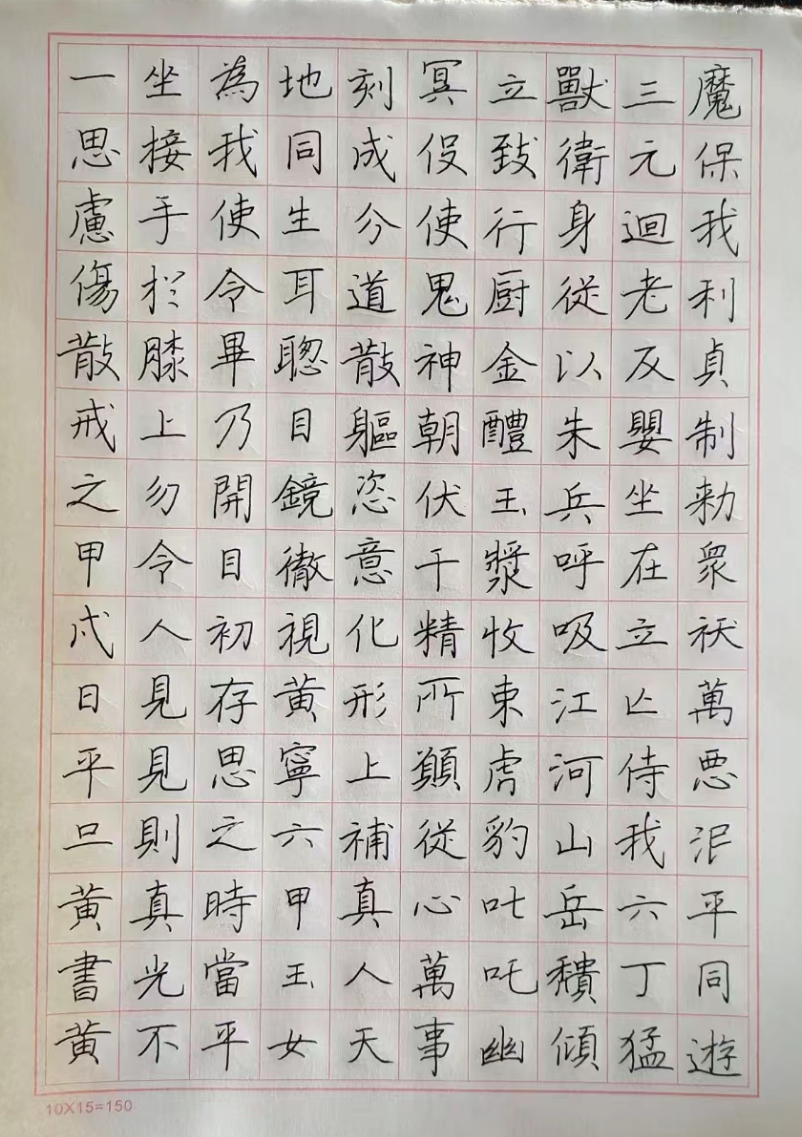 魔保我利貞制勑衆祅萬悪泯平同遊
三元迴老反嬰坐在立亡侍我六丁猛
獸衛身從以朱兵呼吸江河山岳穨傾
立致行厨金醴玉漿收束虎豹叱吒幽
冥役使鬼神朝伏千精所願從心萬事
刻成分道散軀恣意化形上補真人天
地同生耳聦目鏡徹視黄寧六甲玉女
為我使令畢乃開目初存思之時當平
坐接手於膝上勿令人見見則真光不
一思慮傷散戒之甲戌日平旦黄書黄
10X15=150